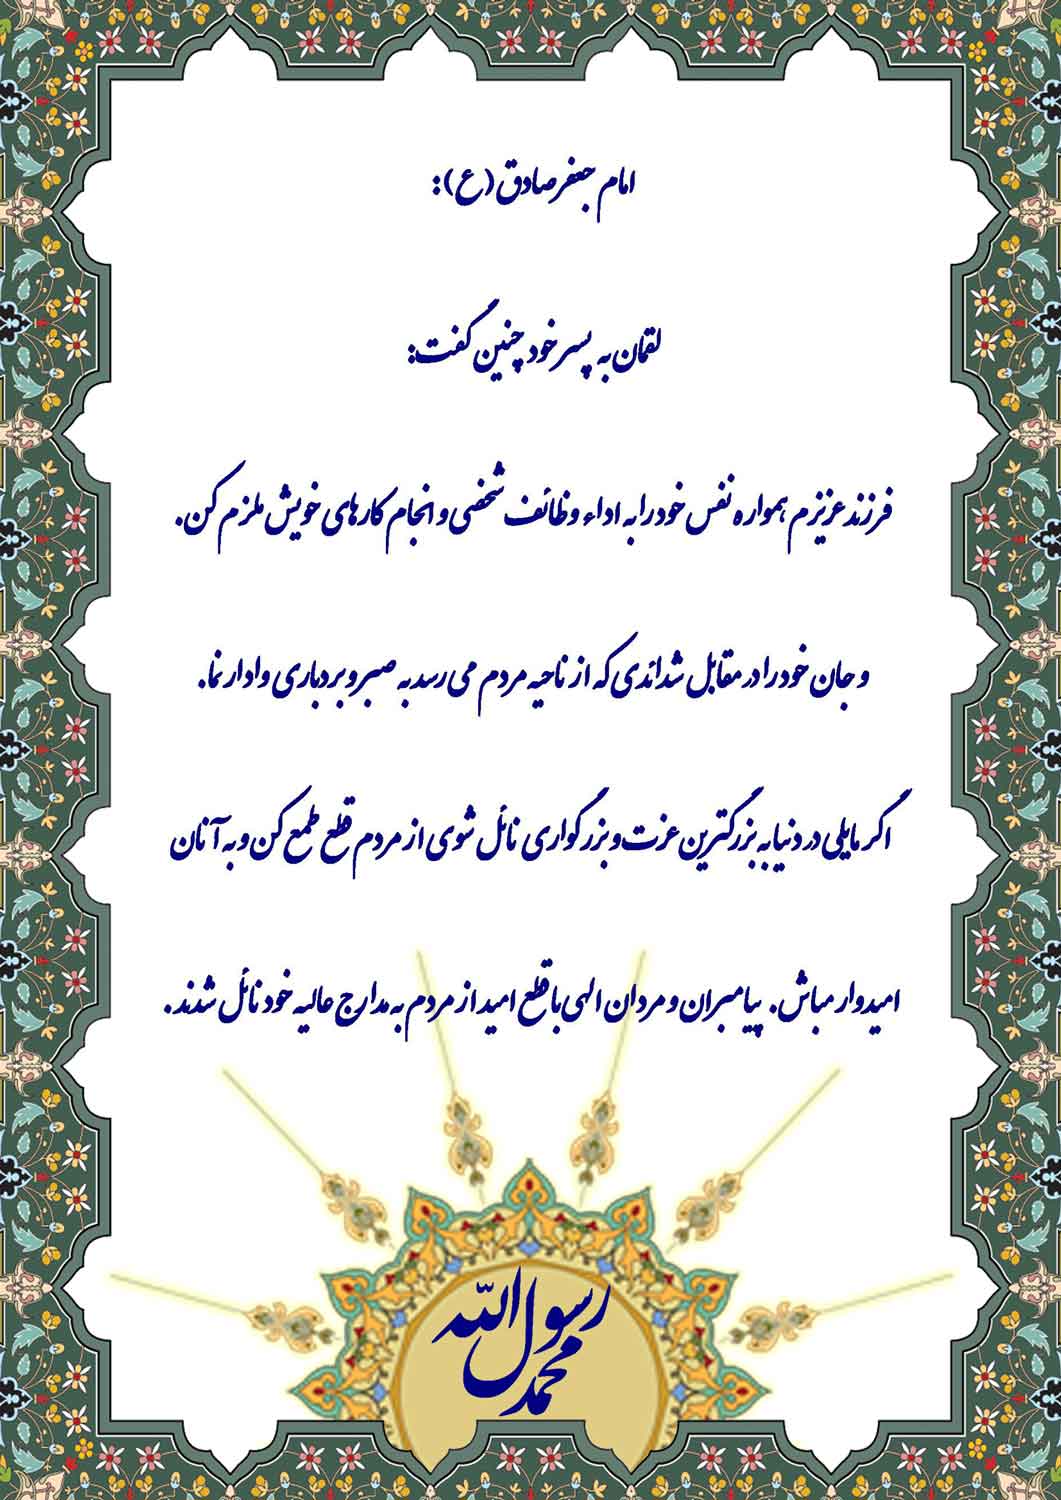 امام جعفر صادق (ع):
لقمان به پسر خود چنین گفت:
فرزند عزیزم همواره نفس خود را به اداء وظائف شخصی و انجام کارهای خویش ملزم کن.
و جان خود را در مقابل شدائدی که از ناحیه مردم می رسد به صبر و بردباری وادار نما.
اگر مایلی در دنیا به بزرگترین عزت و بزرگواری نائل شوی از مردم قطع طمع کن و به آنان
امیدوار مباش. پیامبران و مردان الهی با قطع امید از مردم به مدارج عالیه خود نائل شدند.
محمد رسول الله